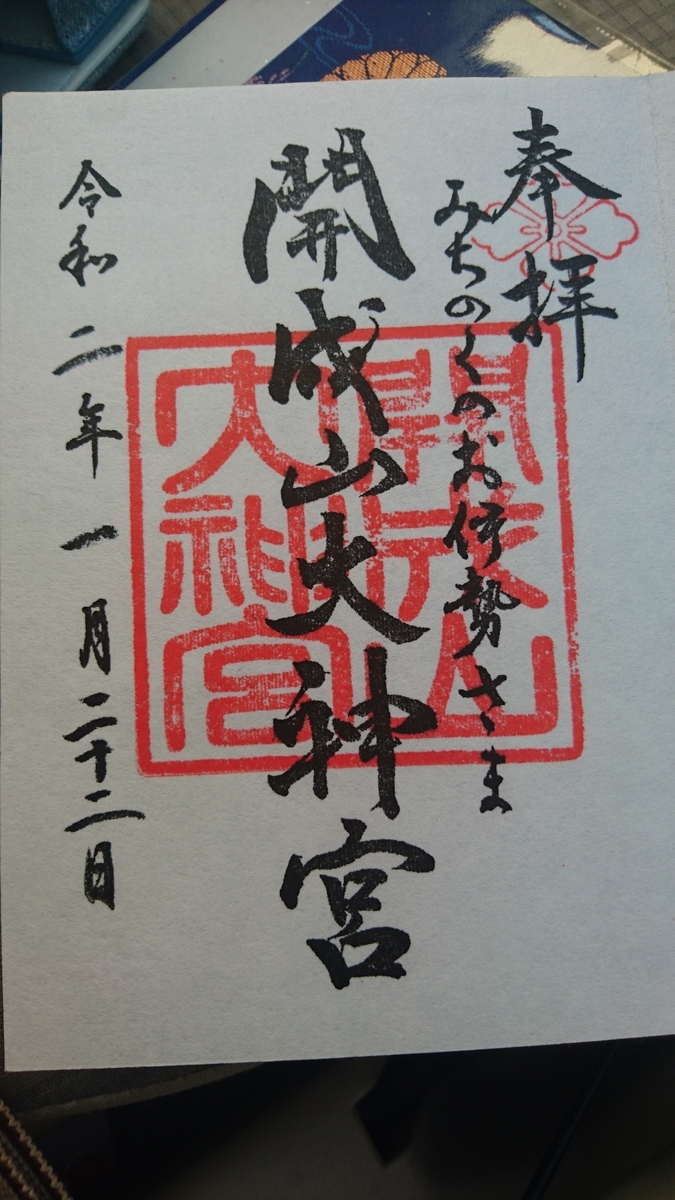 奉拝
みちのくのお伊勢さま
開成山大神宮
開成山
大神宮
令和二年一月二十二日